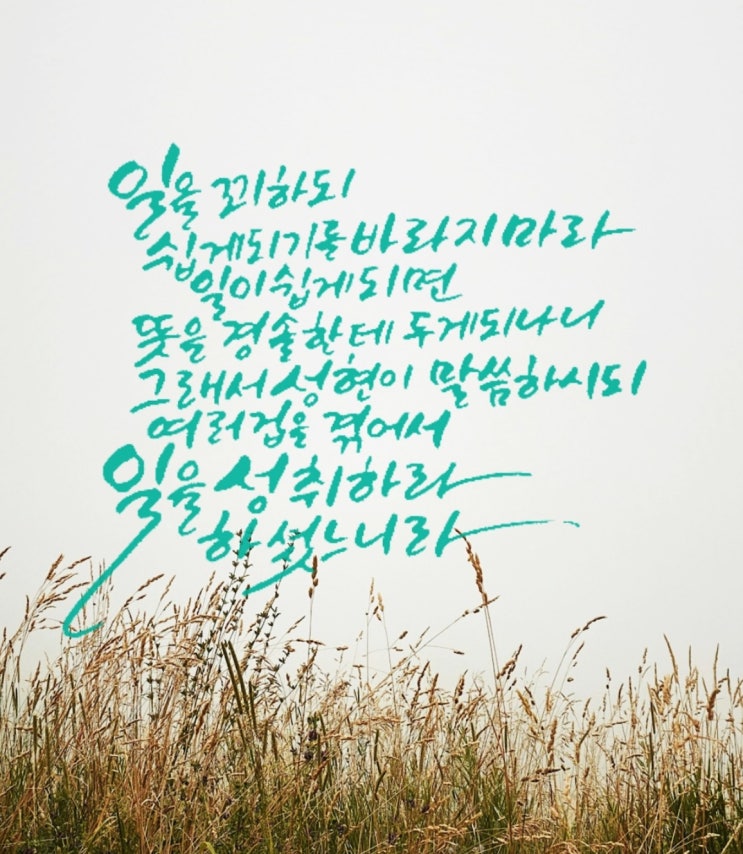 일을 꾀하되
쉽게되기를바라지마라
일이쉽게되면
뜻을 경솔한데 두게되나니
그래서 성현이 말씀하시되
여러겁을 겪어서
일을 성취하라
하셨느니라